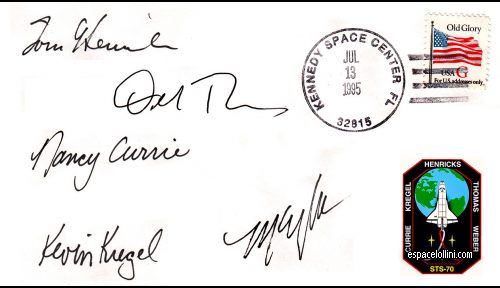 Tom Henricks
KENNEDY SPACE CENTER, FL
JUL
13
1995
32815
Old Glory
USA G
For U.S. addresses only
Nancy Currie
Kevin Kregel
CURRIE KREGEL HENRICKS THOMAS WEBER
STS-70
espacelollini.com